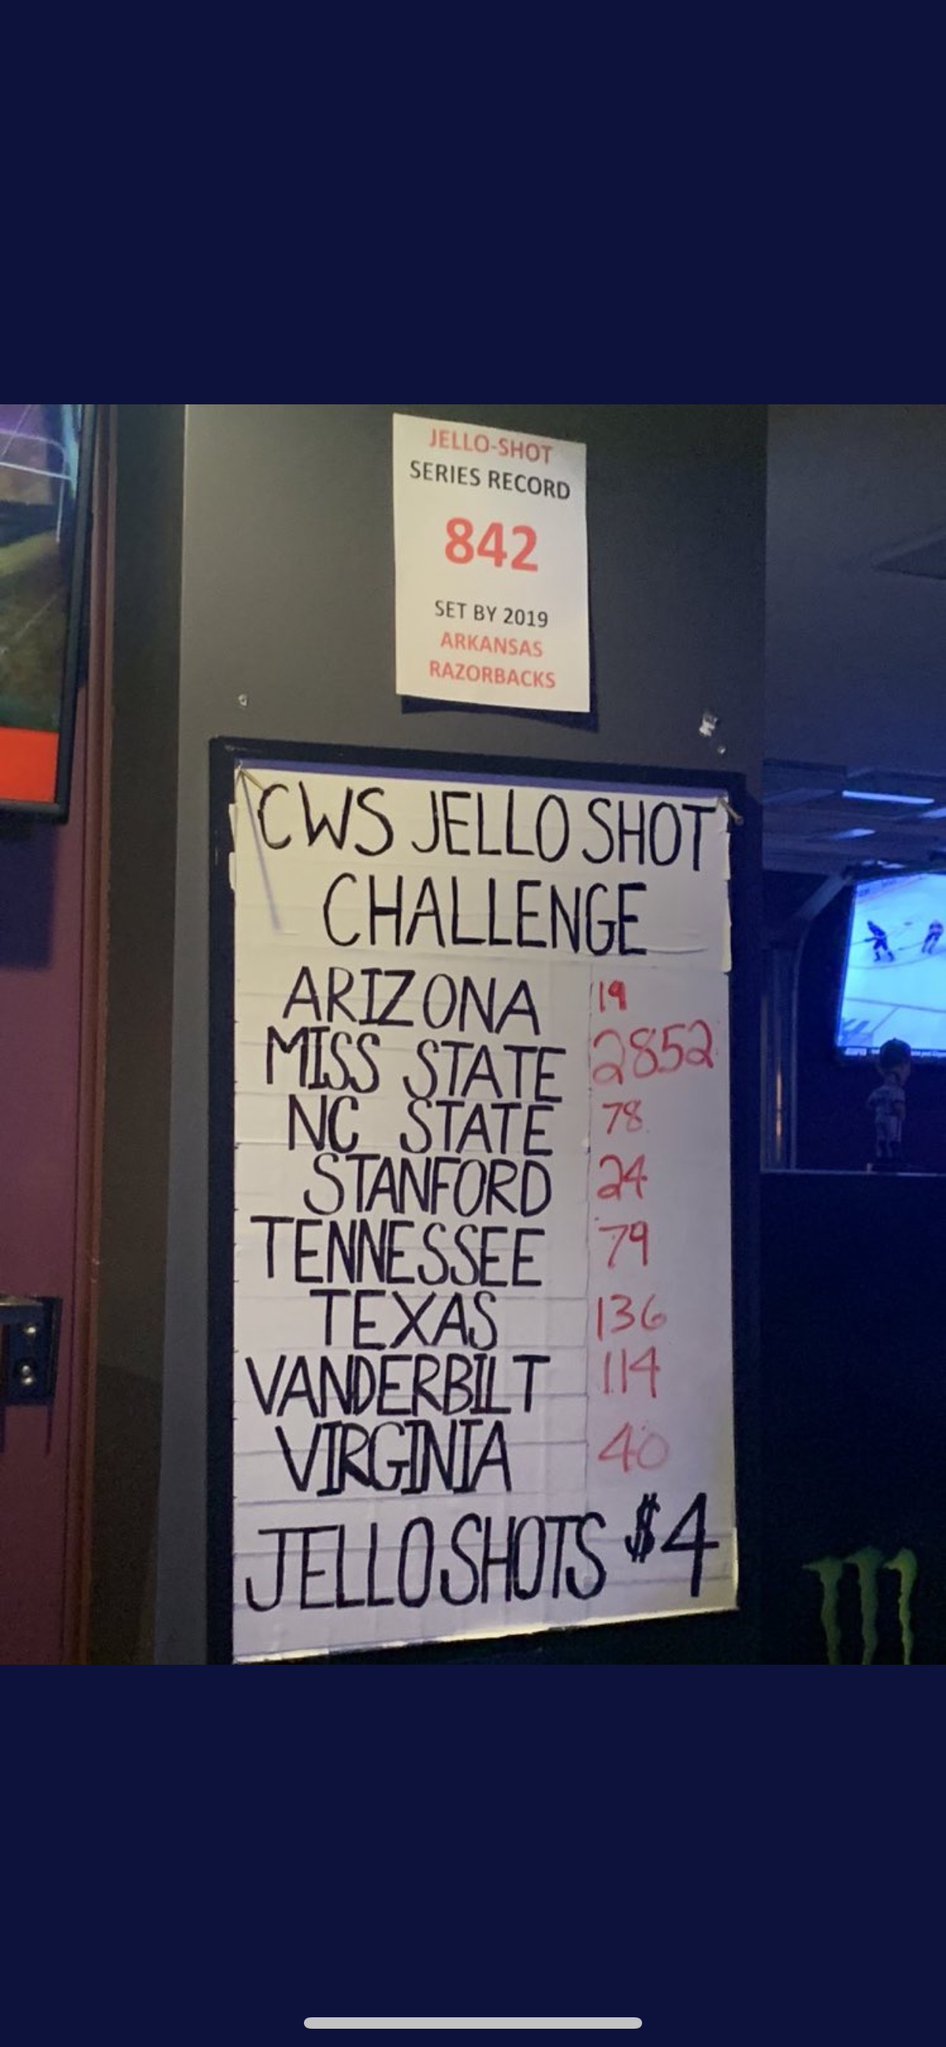 JELLO-SHOT
SERIES RECORD
842
SET BY 2019
ARKANSAS
RAZORBACKS
CWS JELLO SHOT
CHALLENGE
ARIZONA 19
MISS STATE 2852
NC STATE 78
STANFORD 24
TENNESSEE 79
TEXAS 136
VANDERBILT 114
VIRGINIA 40
JELLO SHOTS $4